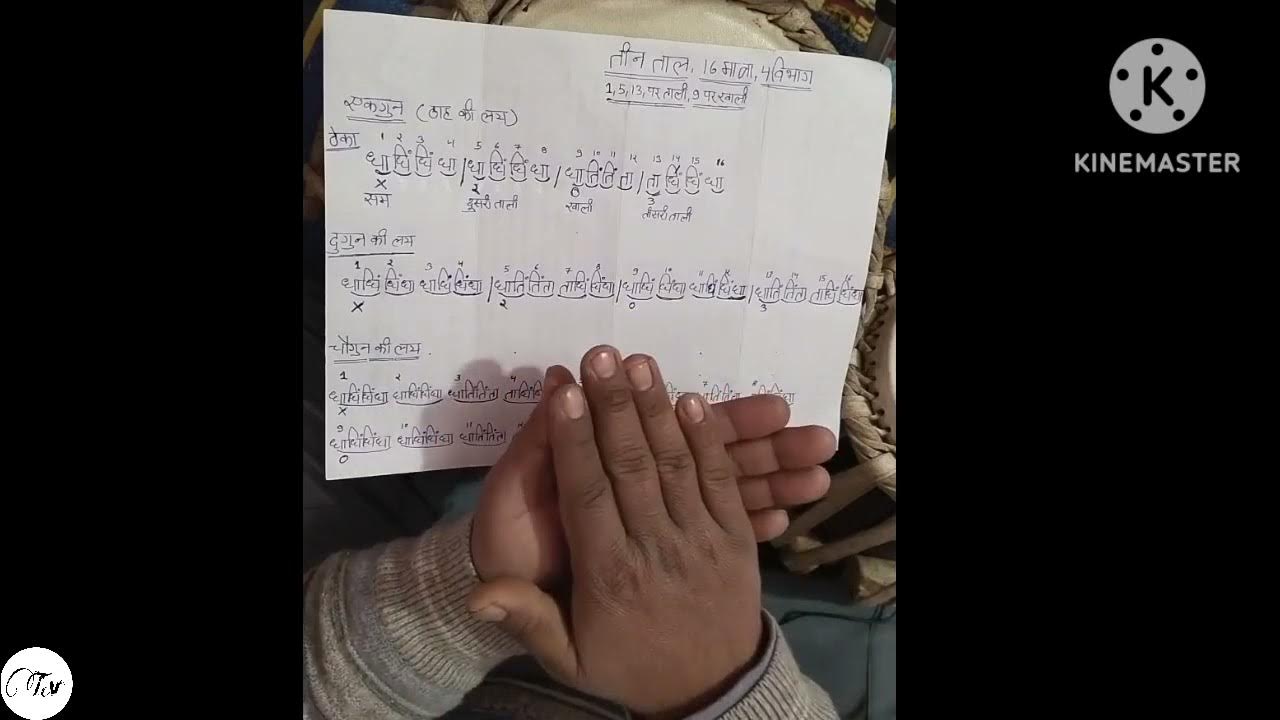 तीन ताल, 16 मात्रा, 4 विभाग
1,5,13, पर ताली, 9 पर खाली
एकगुन (ठाह की लय)
ठेका
1 2 3 4 5 6 7 8 9 10 11 12 13 14 15 16
धा धिं धिं धा / धा धिं धिं धा / धा तिं तिं ता / ता धिं धिं धा
X 2 0 3
सम दुसरी ताली खाली तीसरी ताली
दुगुन की लय
1 2 3 4 5 6 7 8 9 10 11 12 13 14 15 16
धाधिं धिंधा धाधिं धिंधा / धातिं तिंता ताधिं धिंधा / धाधिं धिंधा धाधिं धिंधा / धातिं तिंता ताधिं धिंधा
X 2 0 3
चौगुन की लय
1 2 3 4 7 8
धाधिंधिंधा धाधिंधिंधा धातिंतिंता धातिंतिंता
X
9 10 11
धाधिंधिंधा धाधिंधिंधा धातिंतिंता
0
KINEMASTER